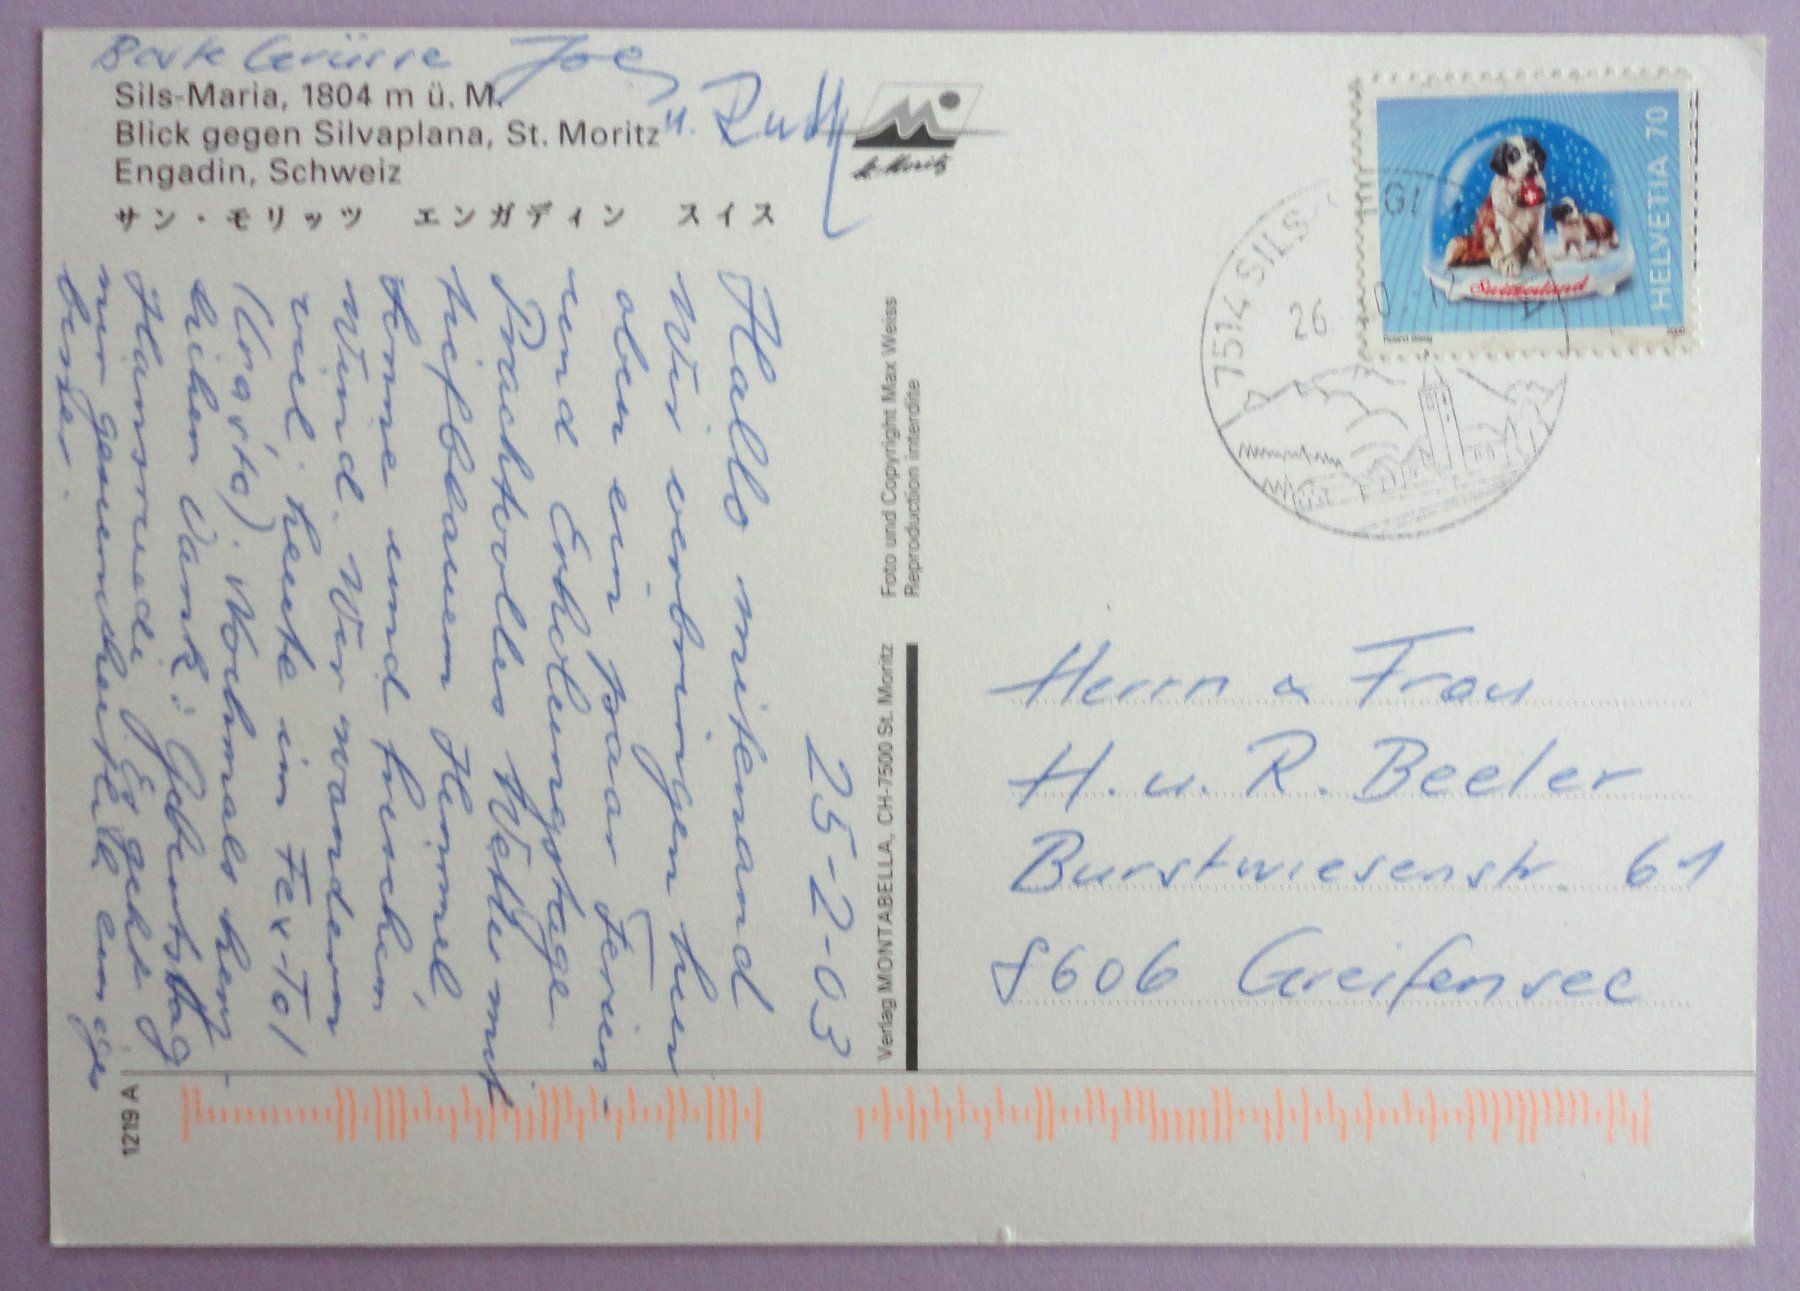 Beste Grüsse Joe
u. Ruth
Sils-Maria, 1804 m ü. M.
Blick gegen Silvaplana, St. Moritz
Engadin, Schweiz
サン・モリッツ エンガディン スイス
St. Moritz
25-2-03
Hallo mitenand
Wir verbringen hier
oben ein paar Ferien-
und Erholungstage.
Prachtvolles Wetter mit
tiefblauem Himmel
Sonne und frischem
Wind. Wir wandern
viel, heute im Fex-Tal
(Crasta). Nochmals herz-
lichen Dank
Hansruedi! Es geht
mir gesundheitlich einiges
besser.
Foto und Copyright Max Weiss
Reproduction interdite
Verlag MONTABELLA, CH-7500 St. Moritz
1219 A
HELVETIA 70
Switzerland
7514 SILS
26
Herrn & Frau
H. u. R. Beeler
Burstwiesenstr. 61
8606 Greifensee